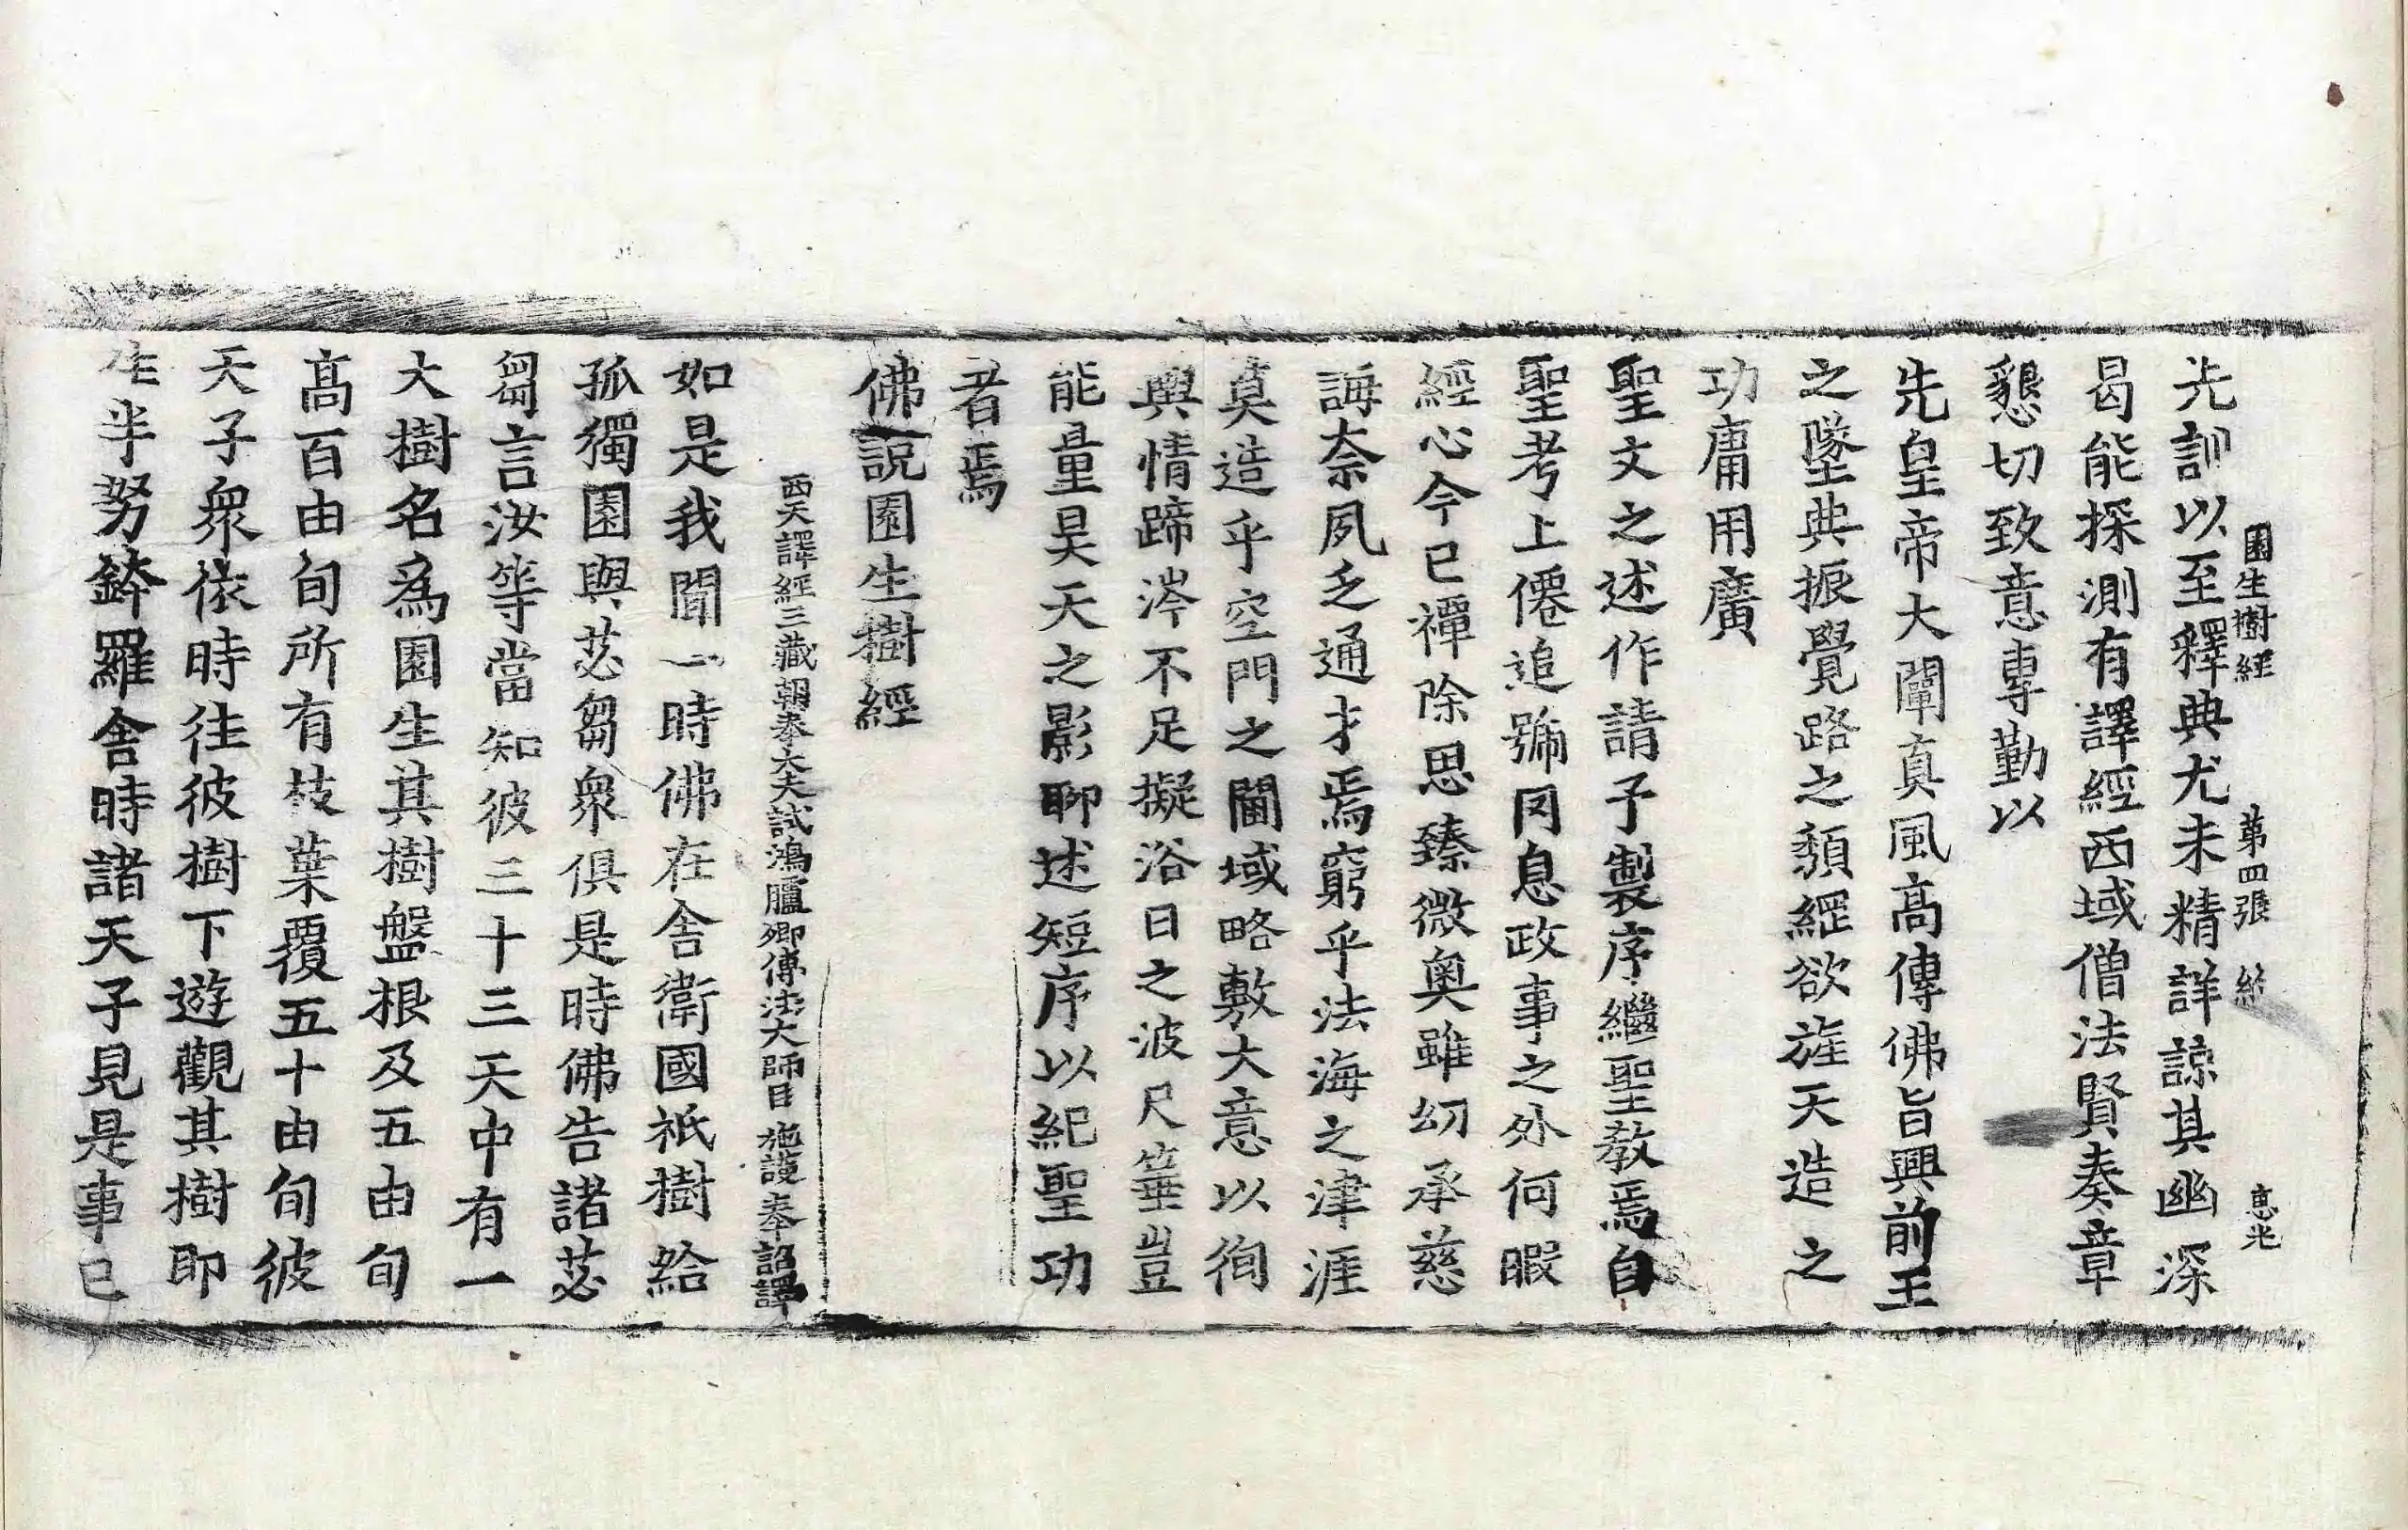 園生樹經　第四張　　惠光
先訓以至釋典尤未精詳諒其幽深
曷能探測有譯經西域僧法賢奏章
懇切致意專勤以
先皇帝大闡真風高傳佛旨興前王
之墜典振覺路之頹綱欲旌天造之
功庸用廣
聖文之述作請予製序繼聖教焉自
聖考上僊追號罔息政事之外何暇
經心今已禫除思臻微奧雖幼承慈
誨柰夙乏通才焉窮乎法海之津涯
莫造乎空門之閫域略敷大意以徇
輿情蹄涔不足擬浴日之波尺箠豈
能量昊天之影聊述短序以紀聖功
者焉
佛說園生樹經
西天譯經三藏朝奉大夫試鴻臚卿傳法大師臣施護奉詔譯
如是我聞一時佛在舍衛國祇樹給
孤獨園與苾芻衆俱是時佛告諸苾
芻言汝等當知彼三十三天中有一
大樹名爲園生其樹盤根及五由旬
高百由旬所有枝葉覆五十由旬彼
天子衆依時往彼樹下遊觀其樹即
生半努鉢羅舍時諸天子見是事已